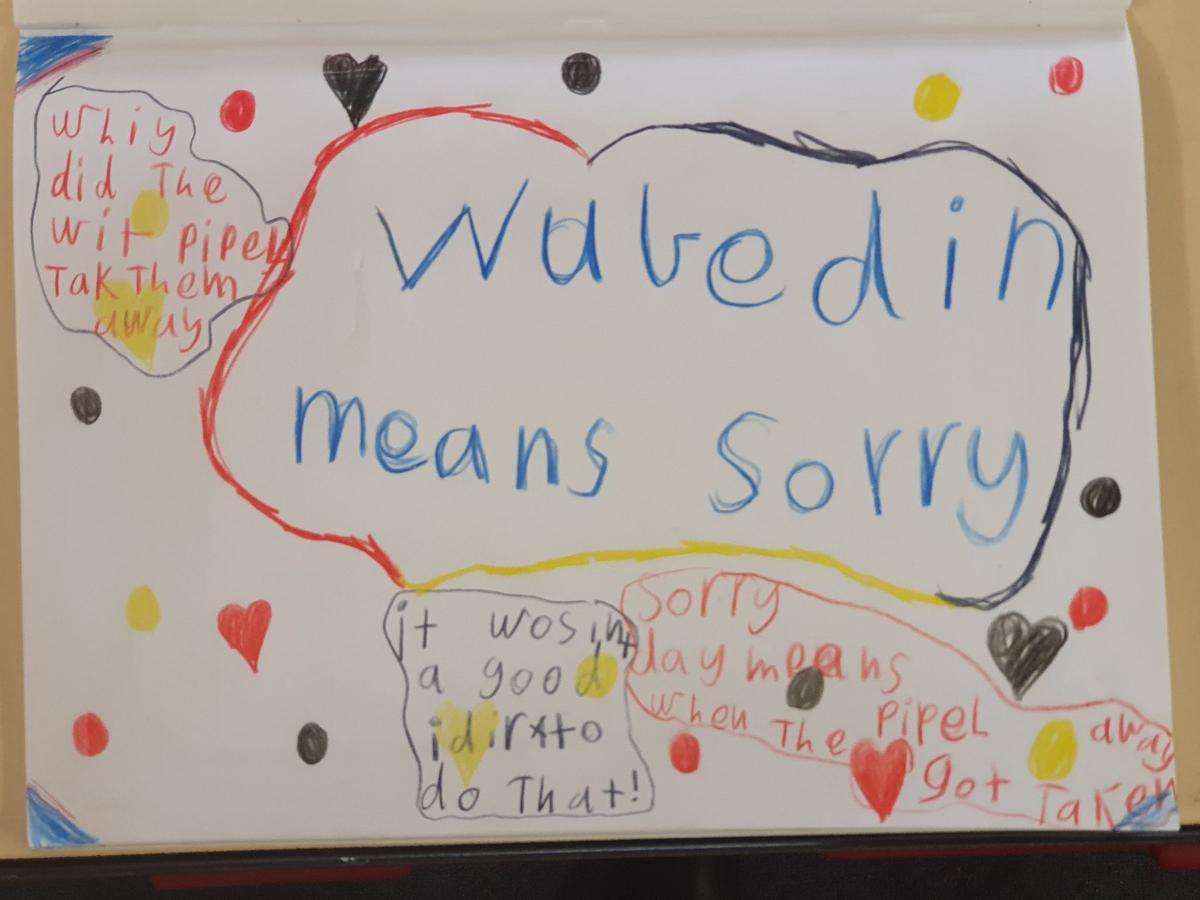 Whiy
did The
wit pipel
Tak Them
away
Wabedin
means Sorry
it wosint
a good
idir to
do That!
Sorry
day means
when The pipel
got Taken
away